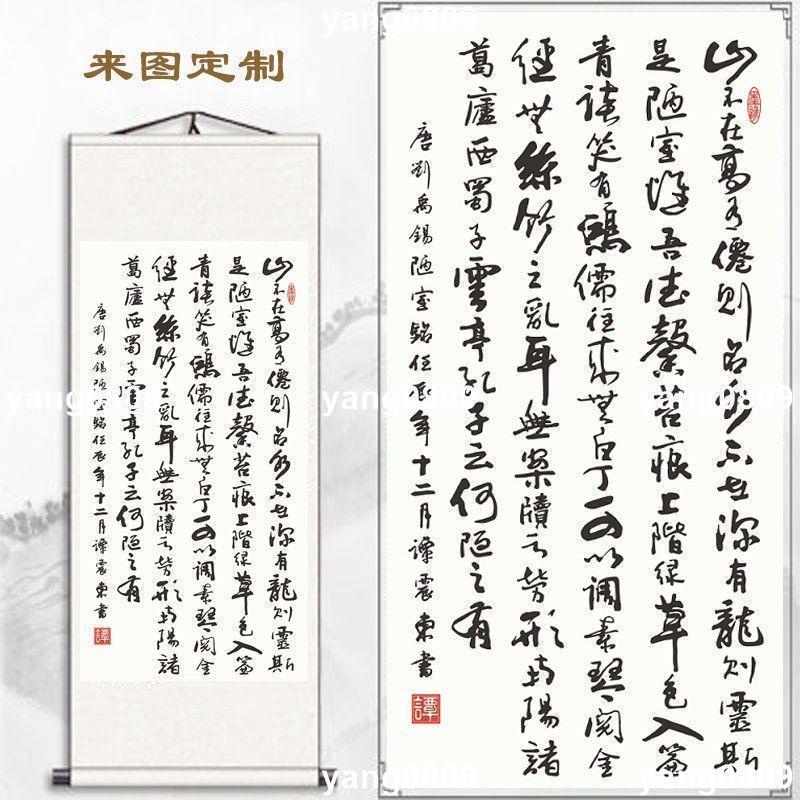 来图定制
山不在高有僊則名水不在深有龍則靈斯
是陋室惟吾德馨苔痕上階綠草色入簾
青談笑有鴻儒往來無白丁可以調素琴閱金
經無絲竹之亂耳無案牘之勞形南陽諸
葛廬西蜀子雲亭孔子云何陋之有
唐劉禹錫陋室銘壬辰年十二月譚震東書
譚
山不在高有僊則名水不在深有龍則靈斯
是陋室惟吾德馨苔痕上階綠草色入簾
青談笑有鴻儒往來無白丁可以調素琴閱金
經無絲竹之亂耳無案牘之勞形南陽諸
葛廬西蜀子雲亭孔子云何陋之有
唐劉禹錫陋室銘壬辰年十二月譚震東書
譚
yang0809
yang0809
yang0809
yang0809
yang0809
yang0809
yang0809